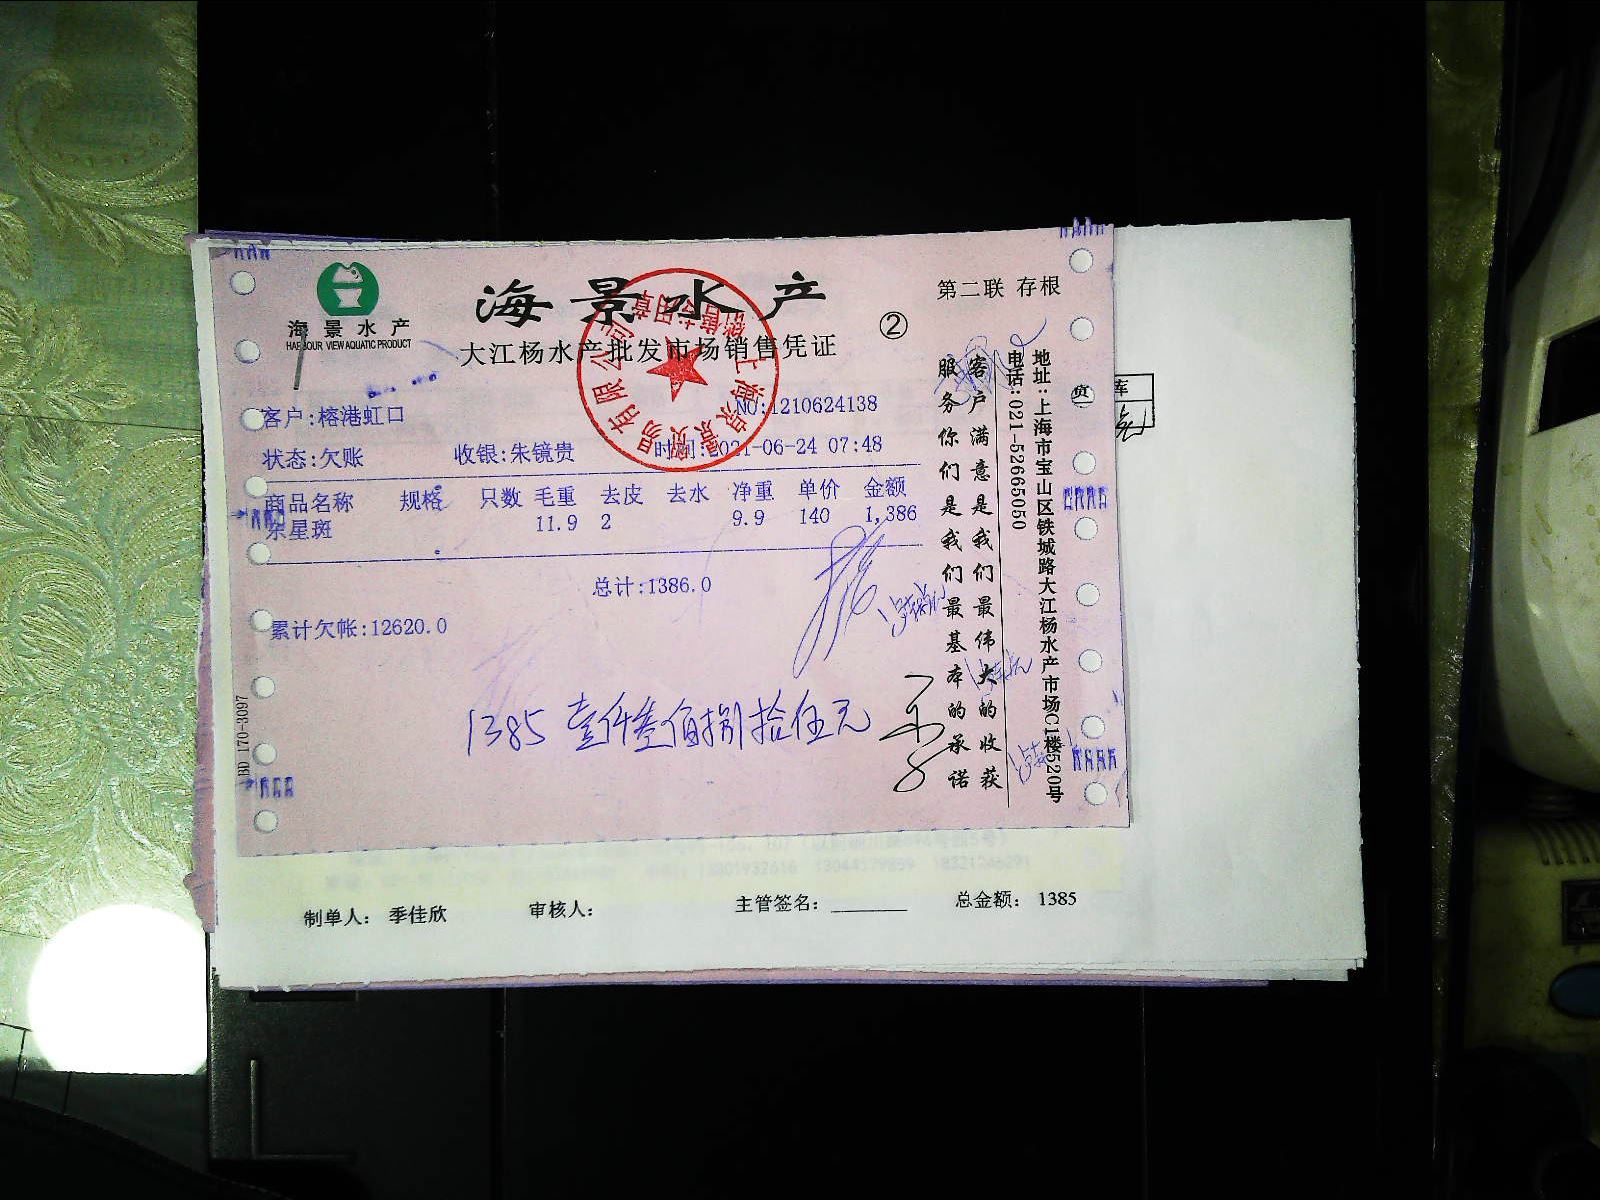 海景水产
HARBOUR VIEW AQUATIC PRODUCT
海景水产
大江杨水产批发市场销售凭证
②
第二联 存根
客户:榕港虹口
NO:1210624138
状态:欠账 收银:朱镜贵 时间:2021-06-24 07:48
商品名称 规格 只数 毛重 去皮 去水 净重 单价 金额
东星斑 11.9 2 9.9 140 1,386
总计:1386.0
累计欠帐:12620.0
1385 壹仟叁佰捌拾伍元
BD 170-3097
服务你们是我们最基本的承诺
客户满意是我们最伟大的收获
电话:021-52665050
地址:上海市宝山区铁城路大江杨水产市场C1楼520号
销售专用章
制单人: 季佳欣 审核人: 主管签名: 总金额: 1385